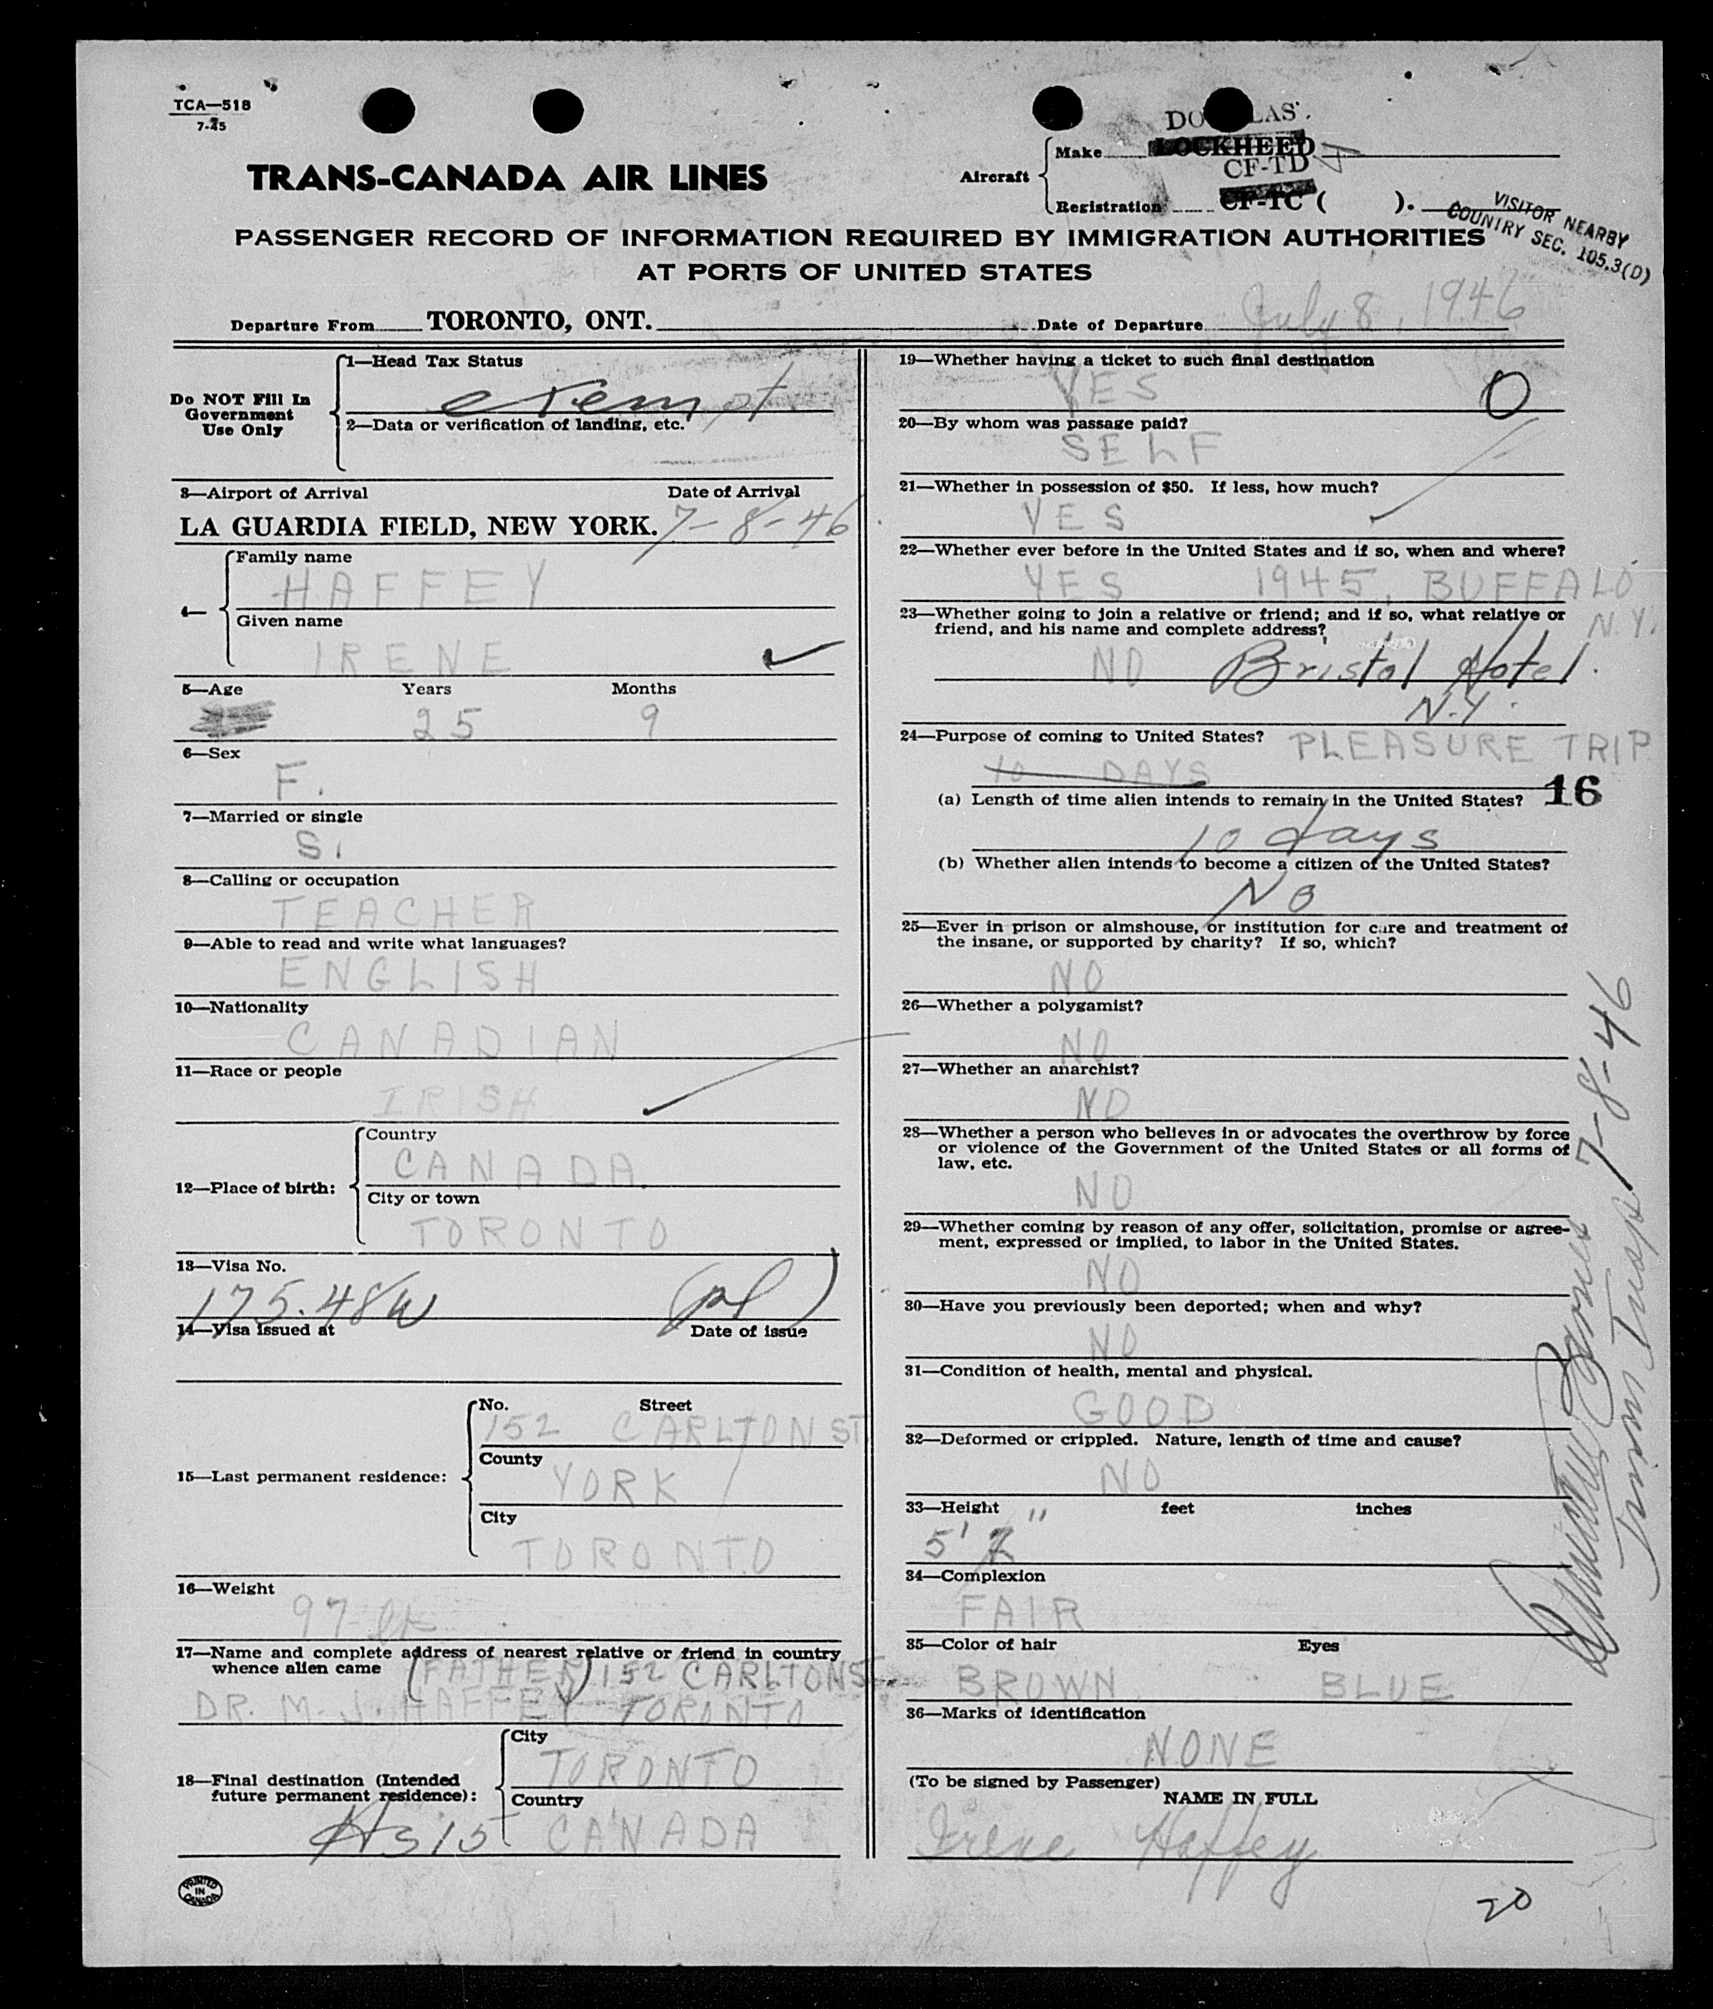 TCA—518
7-45
TRANS-CANADA AIR LINES
Aircraft
Make
DOUGLAS
LOCKHEED
CF-TD
Registration CF-TC ( ).
VISITOR NEARBY
COUNTRY SEC. 105.3(D)
PASSENGER RECORD OF INFORMATION REQUIRED BY IMMIGRATION AUTHORITIES
AT PORTS OF UNITED STATES
Departure From TORONTO, ONT. Date of Departure July 8, 1946
Do NOT Fill In
Government
Use Only
1—Head Tax Status
exempt
2—Data or verification of landing, etc.
3—Airport of Arrival Date of Arrival
LA GUARDIA FIELD, NEW YORK. 7-8-46
4—
Family name
HAFFEY
Given name
IRENE
5—Age Years Months
25 9
6—Sex
F.
7—Married or single
S.
8—Calling or occupation
TEACHER
9—Able to read and write what languages?
ENGLISH
10—Nationality
CANADIAN
11—Race or people
IRISH
12—Place of birth:
Country
CANADA
City or town
TORONTO
13—Visa No.
175.48W
14—Visa issued at Date of issue
15—Last permanent residence:
No. Street
152 CARLTON ST
County
YORK
City
TORONTO
16—Weight
97
17—Name and complete address of nearest relative or friend in country
whence alien came (FATHER) 152 CARLTON ST
DR. M. J. HAFFEY TORONTO
18—Final destination (Intended
future permanent residence):
City
TORONTO
Country
CANADA
PRINTED
IN
CANADA
19—Whether having a ticket to such final destination
YES 0
20—By whom was passage paid?
SELF
21—Whether in possession of $50. If less, how much?
YES
22—Whether ever before in the United States and if so, when and where?
YES 1945, BUFFALO
N.Y.
23—Whether going to join a relative or friend; and if so, what relative or
friend, and his name and complete address?
NO Bristol Hotel.
N.Y.
24—Purpose of coming to United States? PLEASURE TRIP
10 DAYS
16
(a) Length of time alien intends to remain in the United States?
10 days
(b) Whether alien intends to become a citizen of the United States?
NO
25—Ever in prison or almshouse, or institution for care and treatment of
the insane, or supported by charity? If so, which?
NO
26—Whether a polygamist?
NO
27—Whether an anarchist?
NO
28—Whether a person who believes in or advocates the overthrow by force
or violence of the Government of the United States or all forms of
law, etc.
NO
29—Whether coming by reason of any offer, solicitation, promise or agree-
ment, expressed or implied, to labor in the United States.
NO
30—Have you previously been deported; when and why?
NO
31—Condition of health, mental and physical.
GOOD
32—Deformed or crippled. Nature, length of time and cause?
NO
33—Height feet inches
5' 2"
34—Complexion
FAIR
35—Color of hair Eyes
BROWN BLUE
36—Marks of identification
NONE
(To be signed by Passenger)
NAME IN FULL
Irene Haffey
20
7-8-46